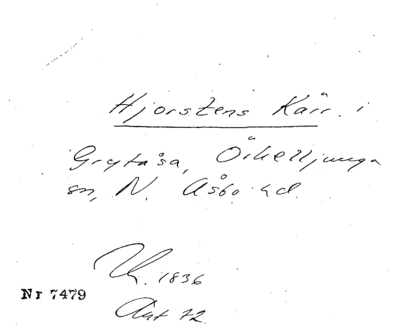 Hjorstens Kärr. i
Grytåsa, Örkelljunga
sn, N. Åsbo hd.
Uk. 1836
Nr 7479
Aut 72.